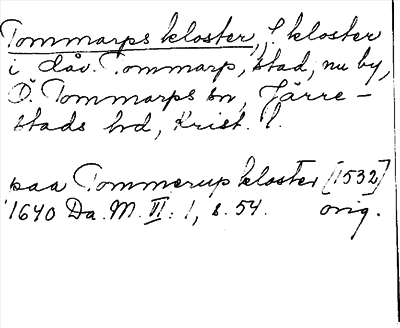 Tommarps kloster, f. kloster
i dåv. Tommarp, stad, nu by,
Ö. Tommarps sn, Järre-
stads hd, Krist. l.
paa Tommerup kloster [1532]
1640 Da. M. VI: 1, s. 54. orig.